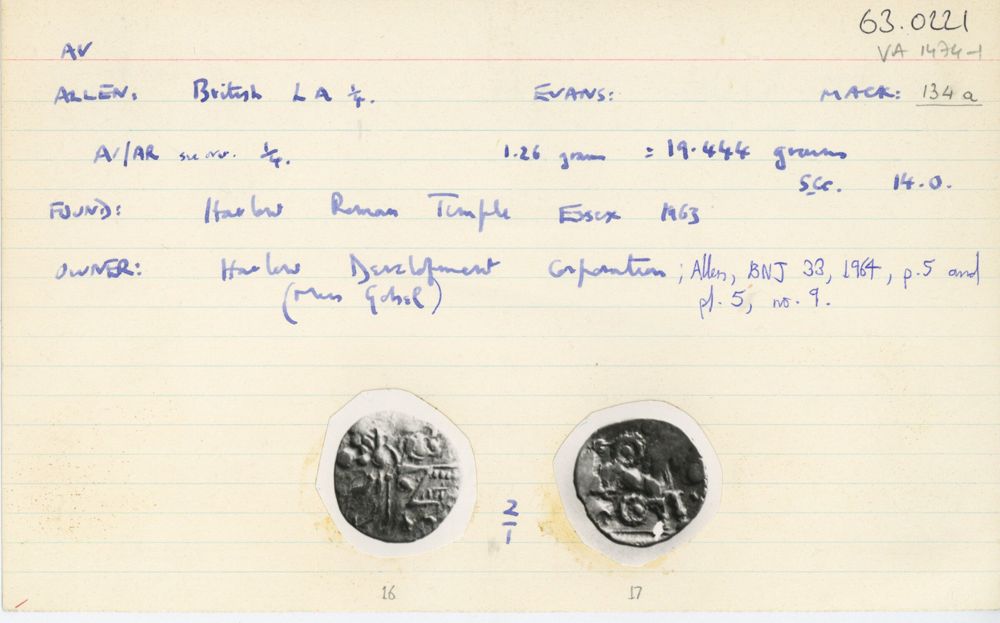 63.0221
AV VA 1474-1
ALLEN: British L A ¼. EVANS: MACK: 134 a
AV/AR ¼. 1.26 grams = 19.444 grains
S.G. 14.0.
FOUND: Harlow Roman Temple Essex 1963
OWNER: Harlow Development Corporation ; Allen, BNJ 33, 1964, p.5 and
(Miss ) pl. 5, no. 9.
2
1
16 17